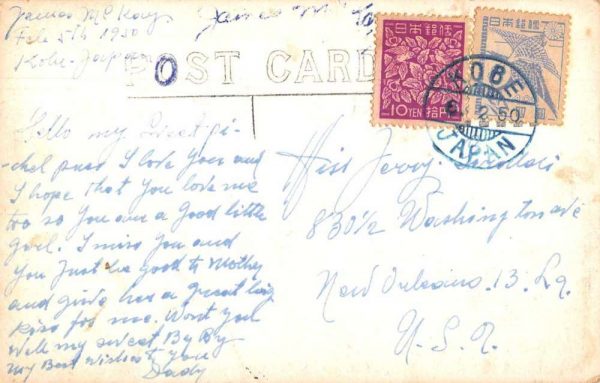 James
Feb 5th 1950
Kobe-Japan
James
POST CARD
日本郵便
10YEN 拾円
日本郵便
KOBE
2.50
JAPAN
Hello my Sweet pi-
I love You and
I hope that You love me
too so You are a Good little
girl. I miss You and
You Just be good to Mother
and give her a great big
kiss for me. Wont you
Well my sweet By By
My Best Wishes to You
Dady
Miss Jerry
830 1/2 Washington ave
New Orleans. 13. La.
U.S.A.